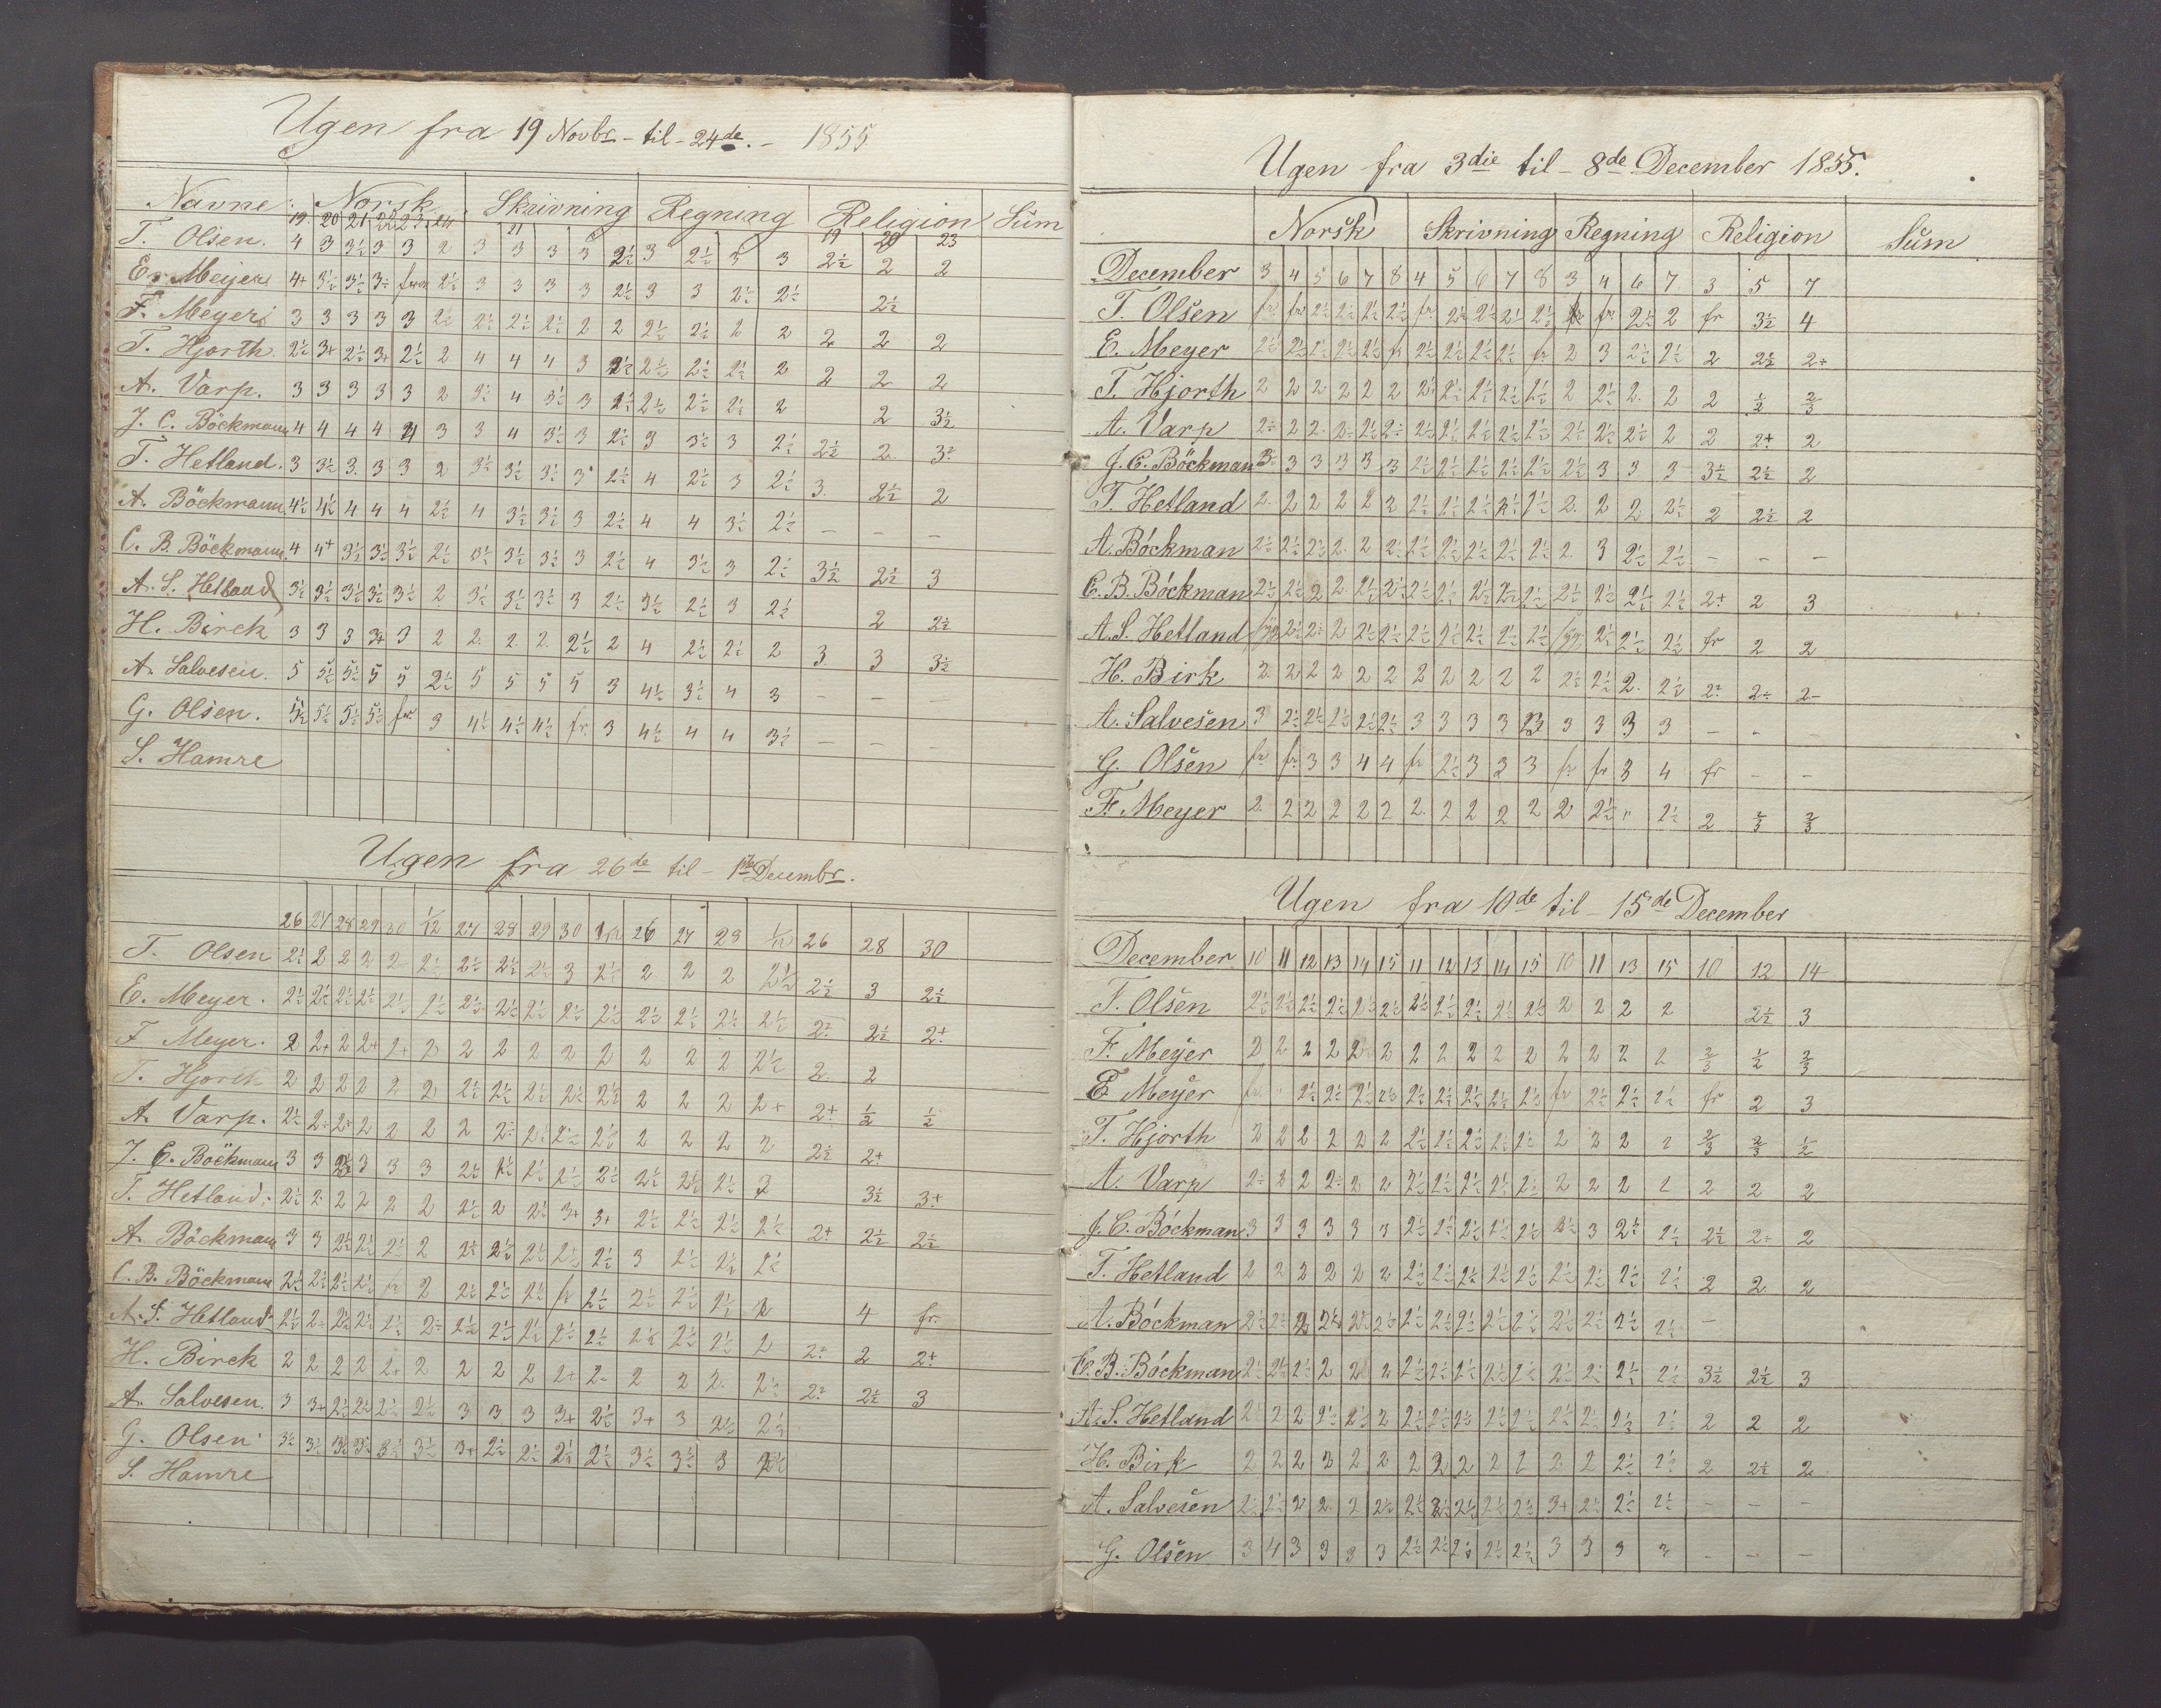 Ugen fra 19 Novbr - til - 24de. - 1855
Navne Norsk Skrivning Regning Religion Sum
19 20 21 22 23 24 21 19 20 23
T. Olsen. 4 3 3½ 3 3 2 3 3 3 3 2½ 3 2½ 3 3 2½ 2 2
E. Meijer 4+ 3½ 3½ 3÷ 2½ 3 3 3 3 2½ 3 3 2½ 2½ 2½
F. Meyer 3 3 3 3 3 2½ 2½ 2½ 2½ 2 2 2½ 2½ 2 2 2 2 2
T. Hjorth. 2½ 3+ 2½ 3+ 2½ 2 4 4 4 3 2½ 2½ 2½ 2½ 2 2 2 2
A. Varp. 3 3 3 3 3 2 3½ 4 3½ 3 2½ 2½ 2½ 2½ 2 2 3½
J. C. Böckmann 4 4 4 4 4 3 3 4 3½ 3 2½ 3 3½ 3 2½ 2½ 2 3÷
T. Hetland. 3 3½ 3 3 3 2 3½ 3½ 3½ 3 2½ 4 2½ 3 2½ 3 2½ 2
A. Böckmann 4½ 4½ 4 4 4 2½ 4 3½ 3½ 3 2½ 4 4 3½ 2½ – – –
C. B. Böckmann 4 4+ 3½ 3½ 3½ 2½ 3½ 3½ 3½ 3 2½ 4 3½ 3 2½ 3½ 2½ 3
A. S. Hetland 3½ 3½ 3½ 3½ 3½ 2 3½ 3½ 3½ 3 2½ 3½ 2½ 3 2½ 2 2½
H. Birck 3 3 3 3+ 3 2 2 2 2 2½ 2 4 2½ 2½ 2 3 3 3½
A. Salvesen. 5 5½ 5½ 5 5 2½ 5 5 5 5 3 4½ 3½ 4 3 – – –
G. Olsen. 5½ 5½ 5½ 5½ fr. 3 4½ 4½ 4½ fr. 3 4½ 4 4 3½ – – –
S. Hamre
Ugen fra 26de til - 1ste Decembr.
26 27 28 29 30 1/12 27 28 29 30 1/12 26 27 29 1/12 26 28 30
T. Olsen 2½ 2 2 2 2 2½ 2½ 2½ 2½ 3 2½ 2 2 2 2½ 2½ 3 2½
E. Meyer. 2½ 2½ 2½ 2½ 2½ 2½ 2½ 2½ 2½ 2½ 2½ 2½ 2½ 2½ 2½ 2÷ 2½ 2+
F Meyer. 2 2+ 2 2+ 2+ 2 2 2 2 2 2 2 2 2 2½ 2 2
T. Hjorth 2 2 2 2 2 2 2½ 2½ 2½ 2½ 2½ 2 2 2 2+ 2+ ½ ½
A. Varp. 2½ 2÷ 2+ 2 2 2 2 2÷ 2½ 2½ 2½ 2 2 2 2 2½ 2+
J. C. Böckmann 3 3 2½ 3 3 3 2½ 2½ 2½ 2½ 2½ 2½ 2½ 2½ 2 3½ 3+
T. Hetland. 2½ 2 2 2 2 2 2½ 2 2½ 3+ 3+ 2½ 2½ 2½ 2½ 2+ 2½ 2½
A. Böckmann 3 3 2½ 2½ 2½ 2 2½ 2½ 2½ 2½ 2½ 3 2½ 2½ 2½
C. B. Böckmann 2½ 2½ 2½ 2½ fr 2 2½ 2½ 2½ fr 2½ 2½ 2½ 2½ 2 4 fr.
A. S. Hetland. 2½ 2÷ 2½ 2½ 2½ 2÷ 2½ 2½ 2½ 2½ 2½ 2½ 2½ 2½ 2 2+ 2 2+
H. Birck 2 2 2 2 2+ 2 2 2 2 2+ 2÷ 2 2 2 2½ 2÷ 2½ 3
A. Salvesen. 3 3+ 2½ 2½ 2½ 2½ 3 3 3 3+ 2½ 3+ 3 2½ 2½
G. Olsen 3½ 3½ 3½ 3½ 3½ 3½ 3+ 2½ 2½ 2½ 2½ 3½ 3½ 3 2½
S. Hamre
Ugen fra 3die til - 8de December 1855.
Norsk Skrivning Regning Religion Sum
December 3 4 5 6 7 8 4 5 6 7 8 3 4 6 7 3 5 7
T. Olsen fr fr 2½ 2½ 2½ 2½ fr 2½ 2½ 2½ 2½ fr fr 2½ 2 fr 3½ 4
E. Meyer 2½ 2½ 2½ 2½ 2½ fr 2½ 2½ 2½ 2½ fr 2 3 2½ 2½ 2 2½ 2÷
T. Hjorth 2 2 2 2 2 2 2½ 2½ 2½ 2½ 2½ 2 2½ 2 2 2 ½ ⅔
A. Varp 2÷ 2 2 2÷ 2½ 2÷ 2½ 2½ 2½ 2½ 2½ 2½ 2½ 2½ 2 2 2+ 2
J. C. Böckman 3 3 3 3 3 3 2½ 2½ 2½ 2½ 2½ 2½ 3 3 3 3½ 2½ 2
T. Hetland 2 2 2 2 2 2 2½ 2½ 2½ 2½ 2½ 2 2 2 2½ 2 2½ 2
A. Böckman 2½ 2½ 2½ 2 2 2½ 2½ 2½ 2½ 2½ 2½ 2 3 2½ 2½ – – –
C. B. Böckman 2½ 2½ 2 2 2½ 2½ 2½ 2½ 2½ 2½ 2½ 2½ 2½ 2½ 2½ 2+ 2 3
A. S. Hetland 2½ 2÷ 2 2½ 2½ 2½ 2½ 2½ 2½ 2½ 2½ 2½ 2½ fr 2 2
H. Birk 2 2 2 2 2 2 2 2 2 2 2 2½ 2½ 2 2½ 2÷ 2÷ 2–
A. Salvesen 3 2½ 2½ 2½ 2½ 2½ 3 3 3 3 3 3 3 3 3 – – –
G. Olsen fr fr 3 3 4 4 fr 2½ 3 3 3 fr fr 3 4 fr – –
F. Meyer 2 2 2 2 2 2 2 2 2 2 2 2 2½ " 2½ 2 ⅔ ⅔
Ugen fra 10de til - 15de December
December 10 11 12 13 14 15 11 12 13 14 15 10 11 13 15 10 12 14
T. Olsen 2½ 2½ 2½ 2½ 2½ 2½ 2½ 2½ 2½ 2½ 2½ 2 2 2 2 2½ 3
F. Meyer 2 2 2 2 2 2 2 2 2 2 2 2 2 2 2 ⅔ ½ ⅔
E Meyer fr " 2½ 2½ 2½ 2½ 2½ 2½ 2½ 2½ 2½ fr 2½ 2½ 2½ fr 2 3
T. Hjorth 2 2 2 2 2 2 2½ 2½ 2½ 2½ 2½ 2 2 2 2 ⅔ ⅔ ½
A. Varp 2÷ 2 2 2÷ 2 2 2½ 2½ 2½ 2½ 2½ 2 2 2 2 2 2 2
J. C. Böckman 3 3 3 3 3 3 2½ 2½ 2½ 2½ 2½ 2½ 3 2½ 2½ 2½ 2÷ 2
T. Hetland 2 2 2 2 2 2 2½ 2½ 2½ 2½ 2½ 2½ 2½ 2½ 2½ 2 2 2
A. Böckman 2½ 2½ 2 2½ 2½ 2½ 2½ 2½ 2½ 2½ 2½ 2½ 2½ 2½ 2½ –
C. B. Böckman 2½ 2½ 2½ 2 2 2 2½ 2½ 2½ 2½ 2½ 2½ 2½ 2½ 2½ 3½ 2½ 3
A. S. Hetland 2½ 2 2 2½ 2½ 2 2½ 2½ 2½ 2½ 2½ 2½ 2½ 2½ 2½ 2 2 2
H. Birk 2 2 2 2 2 2 2 2 2 2 2 2 2 2½ 2½ 2 2½ 2
A. Salvesen 2½ 2½ 2 2 2 2½ 2½ 2½ 2½ 2½ 2½ 3+ 2½ 2½ 2½ – – –
G. Olsen 3 4 3 3 3 3 2½ 2½ 2½ 2½ 2½ 3 3 3 3 – – –